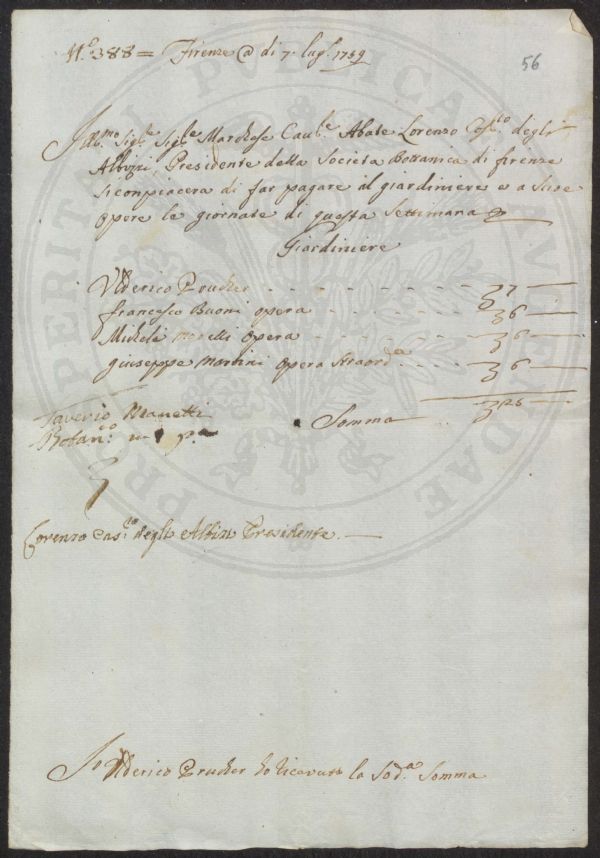 N.º 388 = Firenze @ di 7. lugl. 1759
56
Ill.mo Sig.re Sig.re Marchese Cav.re Abate Lorenzo Cos.to degli
Albizzi, Presidente della Società Bottanica di firenze
si conpiacerà di far pagare al giardiniere e a sue
opere le giornate di questa Settimana
Giardiniere
Ulderico Prucher - - - - 7 —
francesco Buoni opera - - - - 6 —
Michele Morelli opera - - - - 6 —
Giuseppe Martini opera Straord.a - - - - 6 —
Saverio Manetti
Somma 25 —
Botan.co m. p.a
Lorenzo Cas.to degli Albizi Presidente. —
Io Ulderico Prucher ho ricevuto la Sod.a Somma
PROSPERITATI PVBLICAE AVGENDAE